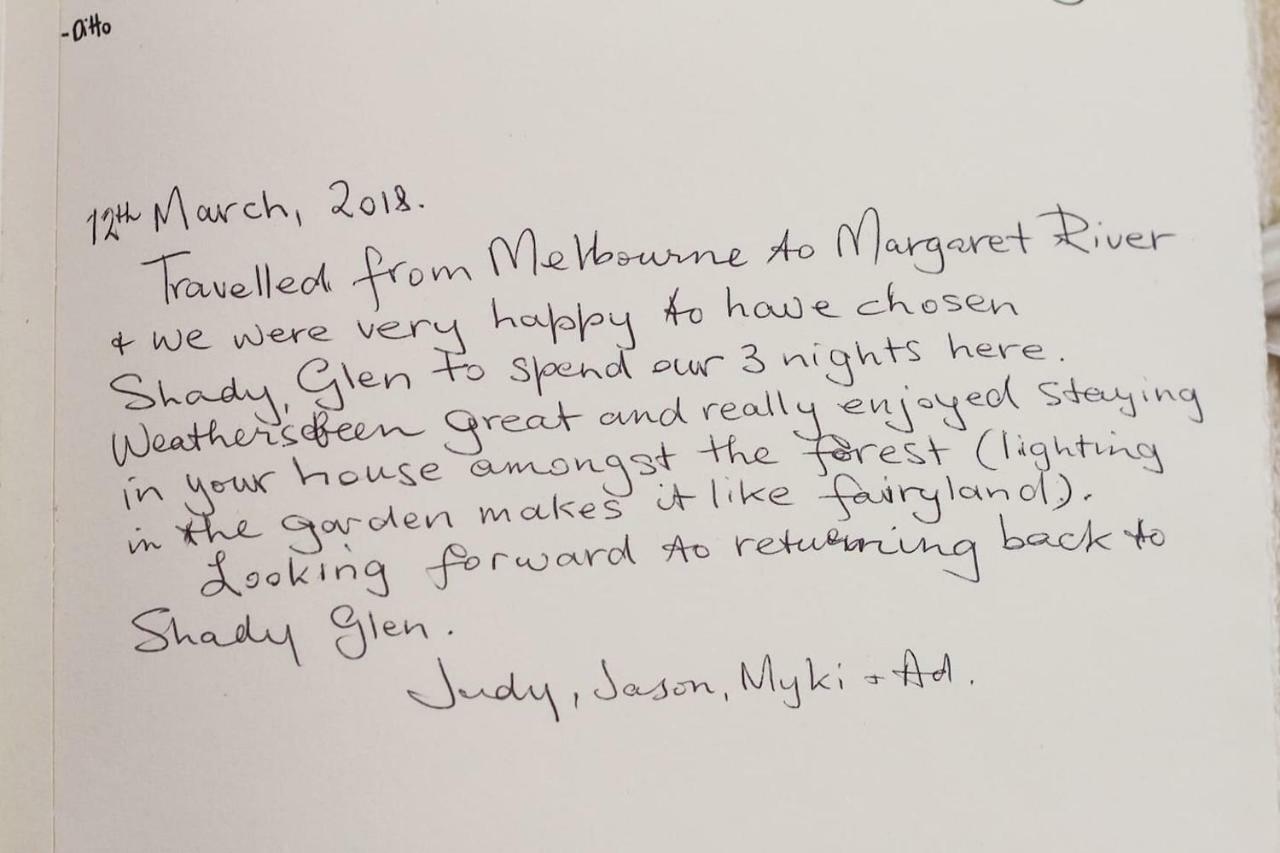 -Ditto
12th March, 2018.
Travelled from Melbourne to Margaret River
+ we were very happy to have chosen
Shady Glen to spend our 3 nights here.
Weather's been great and really enjoyed staying
in your house amongst the forest (lighting
in the garden makes it like fairyland).
Looking forward to returning back to
Shady Glen.
Judy, Jason, Myki + Ad.